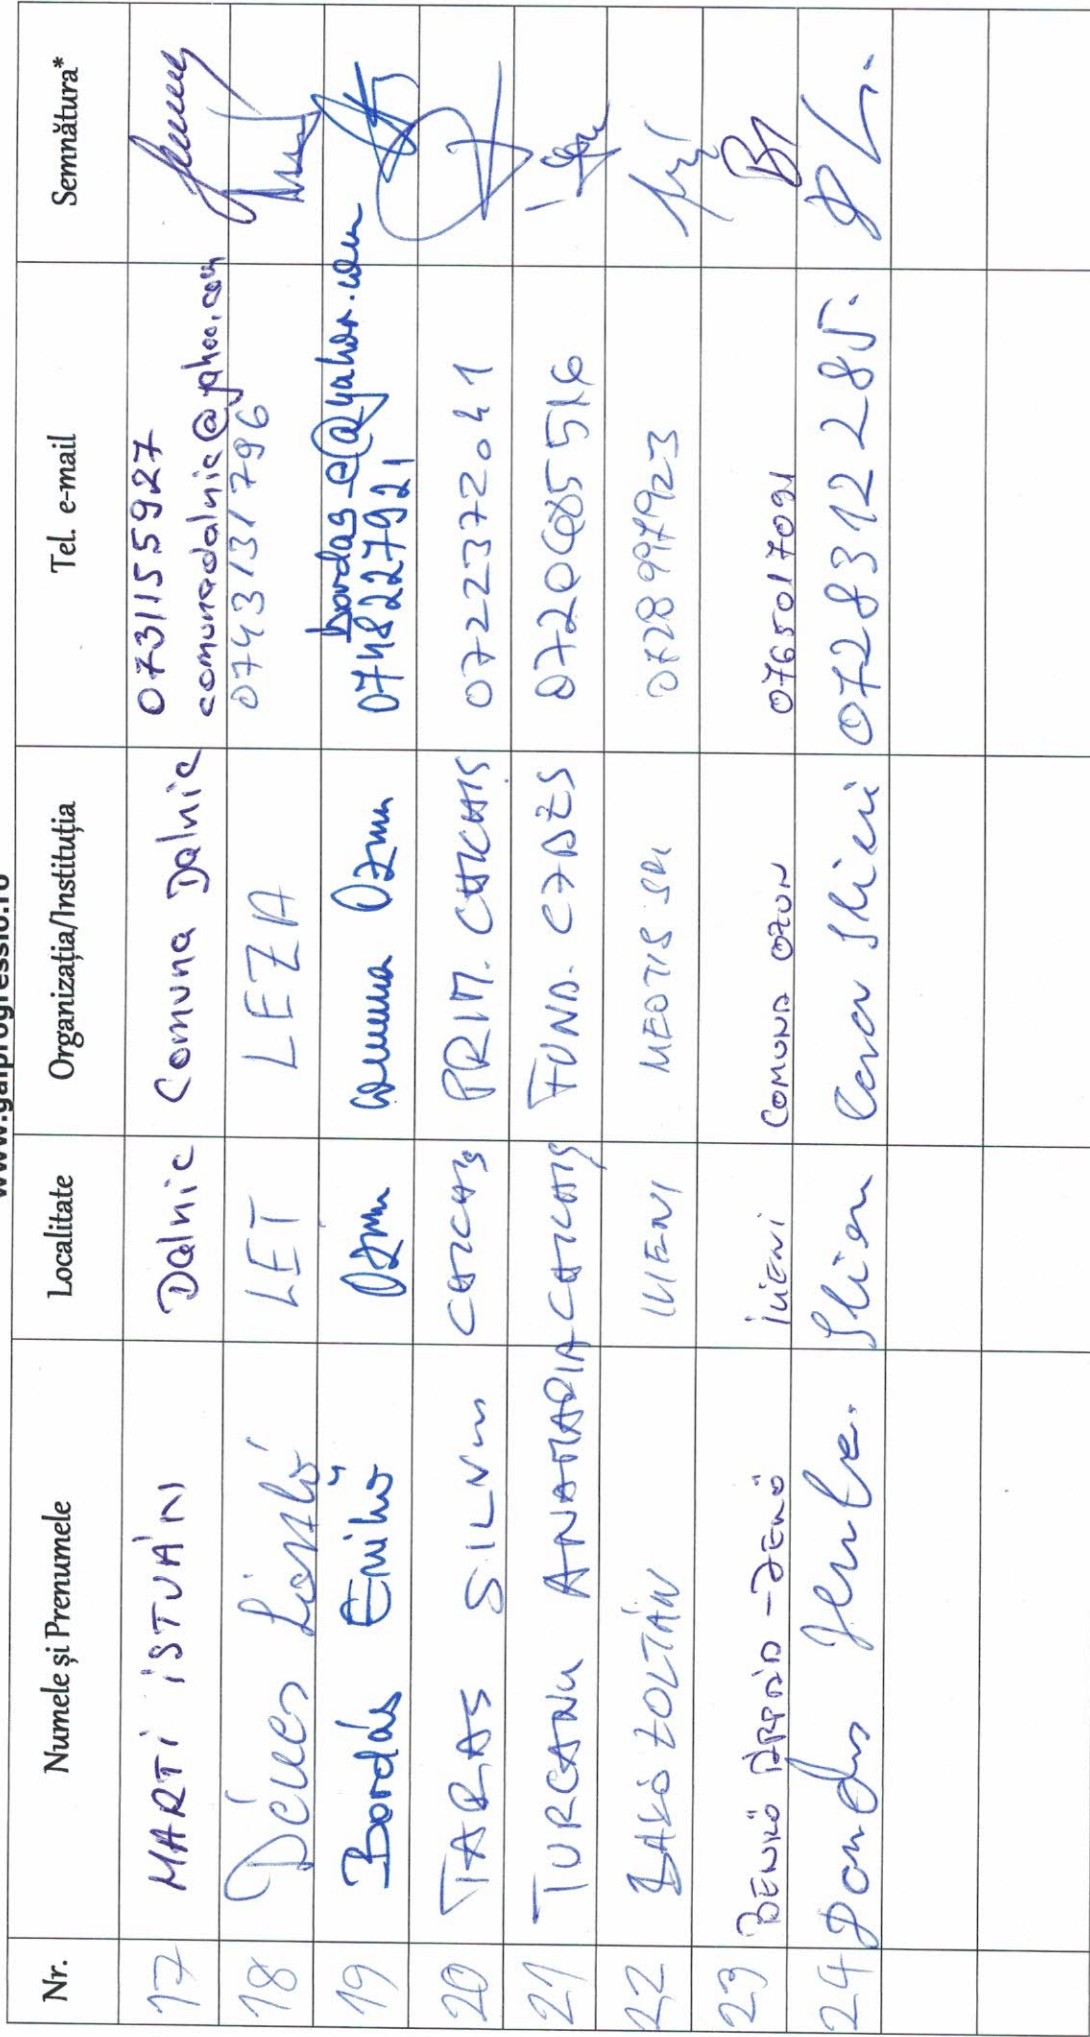 www.galprogressio.ro
Nr. Numele și Prenumele Localitate Organizația/Instituția Tel. e-mail Semnătura*
17 MARTI ISTVÁN Dalnic Comuna Dalnic 0731155927
comunadalnic@yahoo.com
18 Dénes László LET LEZA 0743131796
19 Bordás Enikő Ozun comuna Ozun bordas_e@yahoo.com
0748227921
20 TARAS CHICHIȘ PRIM. CHICHIȘ 0722372041
21 TURCANU ANAMARIA CHICHIȘ FUND.
22 BAKÓ ZOLTÁN ILIENI MEOTIS SRL 0728997923
23 BENKŐ ÁRPÁD-JENŐ ILIENI COMUNA OZUN 0765017091
24 Ilieni 0728312285.